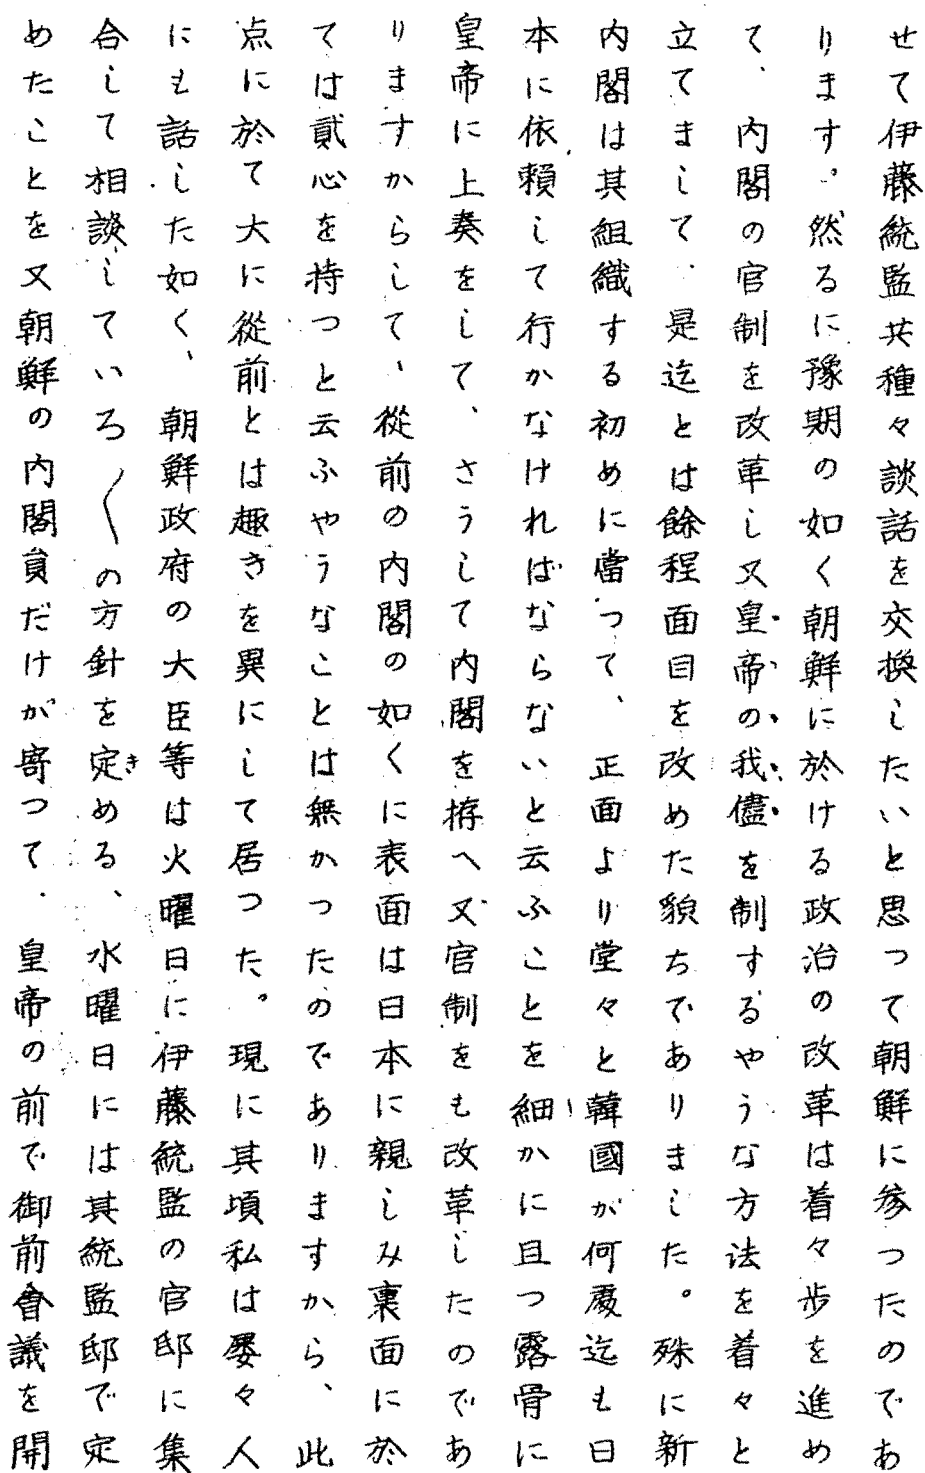 せて伊藤統監共種々談話を交換したいと思つて朝鮮に参つたのであ
ります。然るに豫期の如く朝鮮に於ける政治の改革は着々歩を進め
て、内閣の官制を改革し又皇帝の我儘を制するやうな方法を着々と
立てまして、是迄とは餘程面目を改めた貌ちでありました。殊に新
内閣は其組織する初めに當つて、正面より堂々と韓國が何處迄も日
本に依頼して行かなければならないと云ふことを細かに且つ露骨に
皇帝に上奏をして、さうして内閣を拵へ又官制をも改革したのであ
りますからして、從前の内閣の如くに表面は日本に親しみ裏面に於
ては貳心を持つと云ふやうなことは無かつたのでありますから、此
点に於て大に從前とは趣きを異にして居つた。現に其頃私は屡々人
にも話した如く、朝鮮政府の大臣等は火曜日に伊藤統監の官邸に集
合して相談していろ〱の方針を定める、水曜日には其統監邸で定
めたことを又朝鮮の内閣員だけが寄つて、皇帝の前で御前會議を開